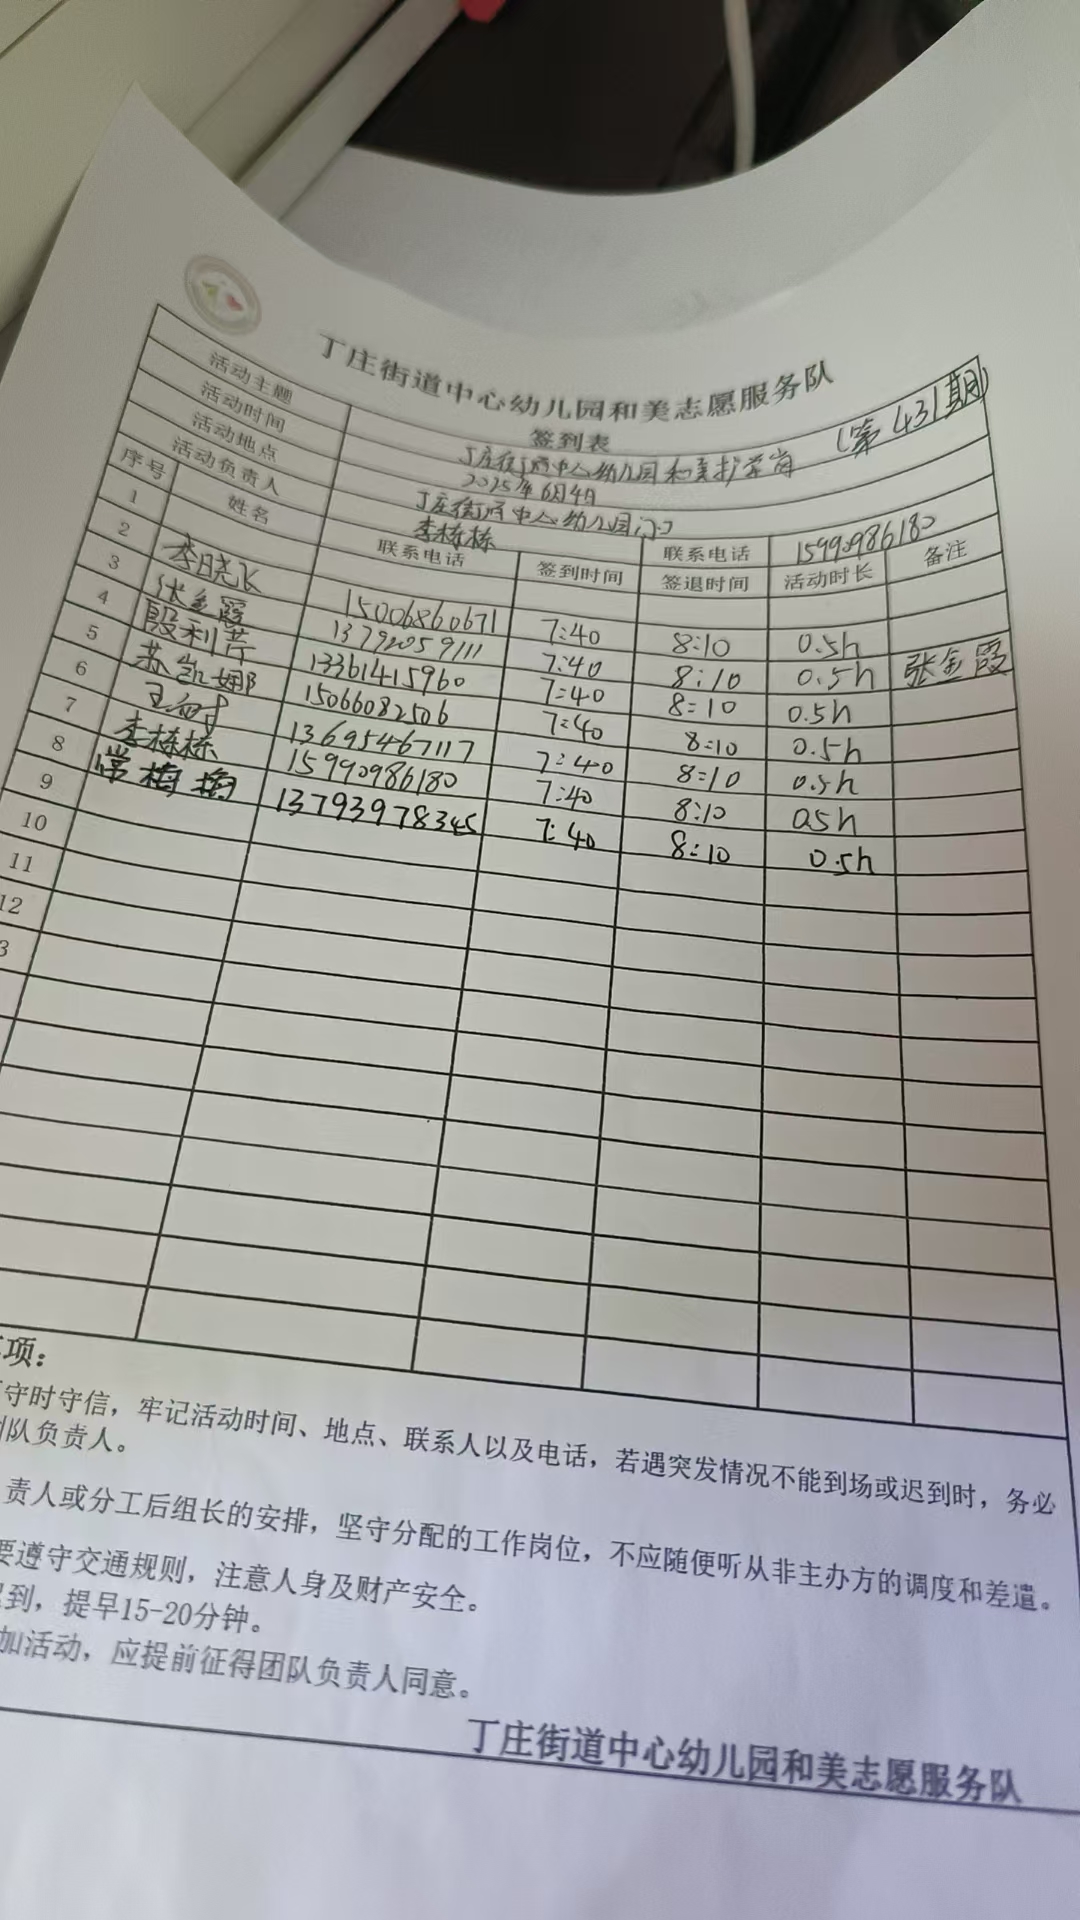 丁庄街道中心幼儿园和美志愿服务队
签到表 (第431期)
活动主题 丁庄街道中心幼儿园和美护学岗
活动时间 2025年6月4日
活动地点 丁庄街道中心幼儿园门口
活动负责人 李栋栋 联系电话 15990986180
序号 姓名 联系电话 签到时间 签退时间 活动时长 备注
1 李晓飞 15006860671 7:40 8:10 0.5h
2 张金霞 13792059111 7:40 8:10 0.5h 张金霞
3 殷利芹 13361415960 7:40 8:10 0.5h
4 苏凯娜 15066082506 7:40 8:10 0.5h
5 13695467117 7:40 8:10 0.5h
6 李栋栋 15990986180 7:40 8:10 0.5h
7 常梅梅 13793978345 7:40 8:10 0.5h
8
9
10
11
12
3
项：
守时守信，牢记活动时间、地点、联系人以及电话，若遇突发情况不能到场或迟到时，务必
队负责人。
责人或分工后组长的安排，坚守分配的工作岗位，不应随便听从非主办方的调度和差遣。
要遵守交通规则，注意人身及财产安全。
到，提早15-20分钟。
加活动，应提前征得团队负责人同意。
丁庄街道中心幼儿园和美志愿服务队